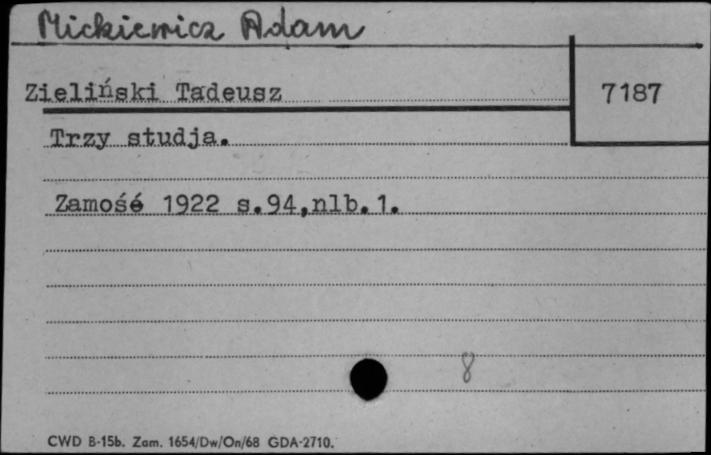 Mickiewicz Adam
Zieliński Tadeusz 7187
Trzy studja.
Zamość 1922 s.94,nlb.1.
8
CWD B-15b. Zam. 1654/Dw/On/68 GDA-2710.